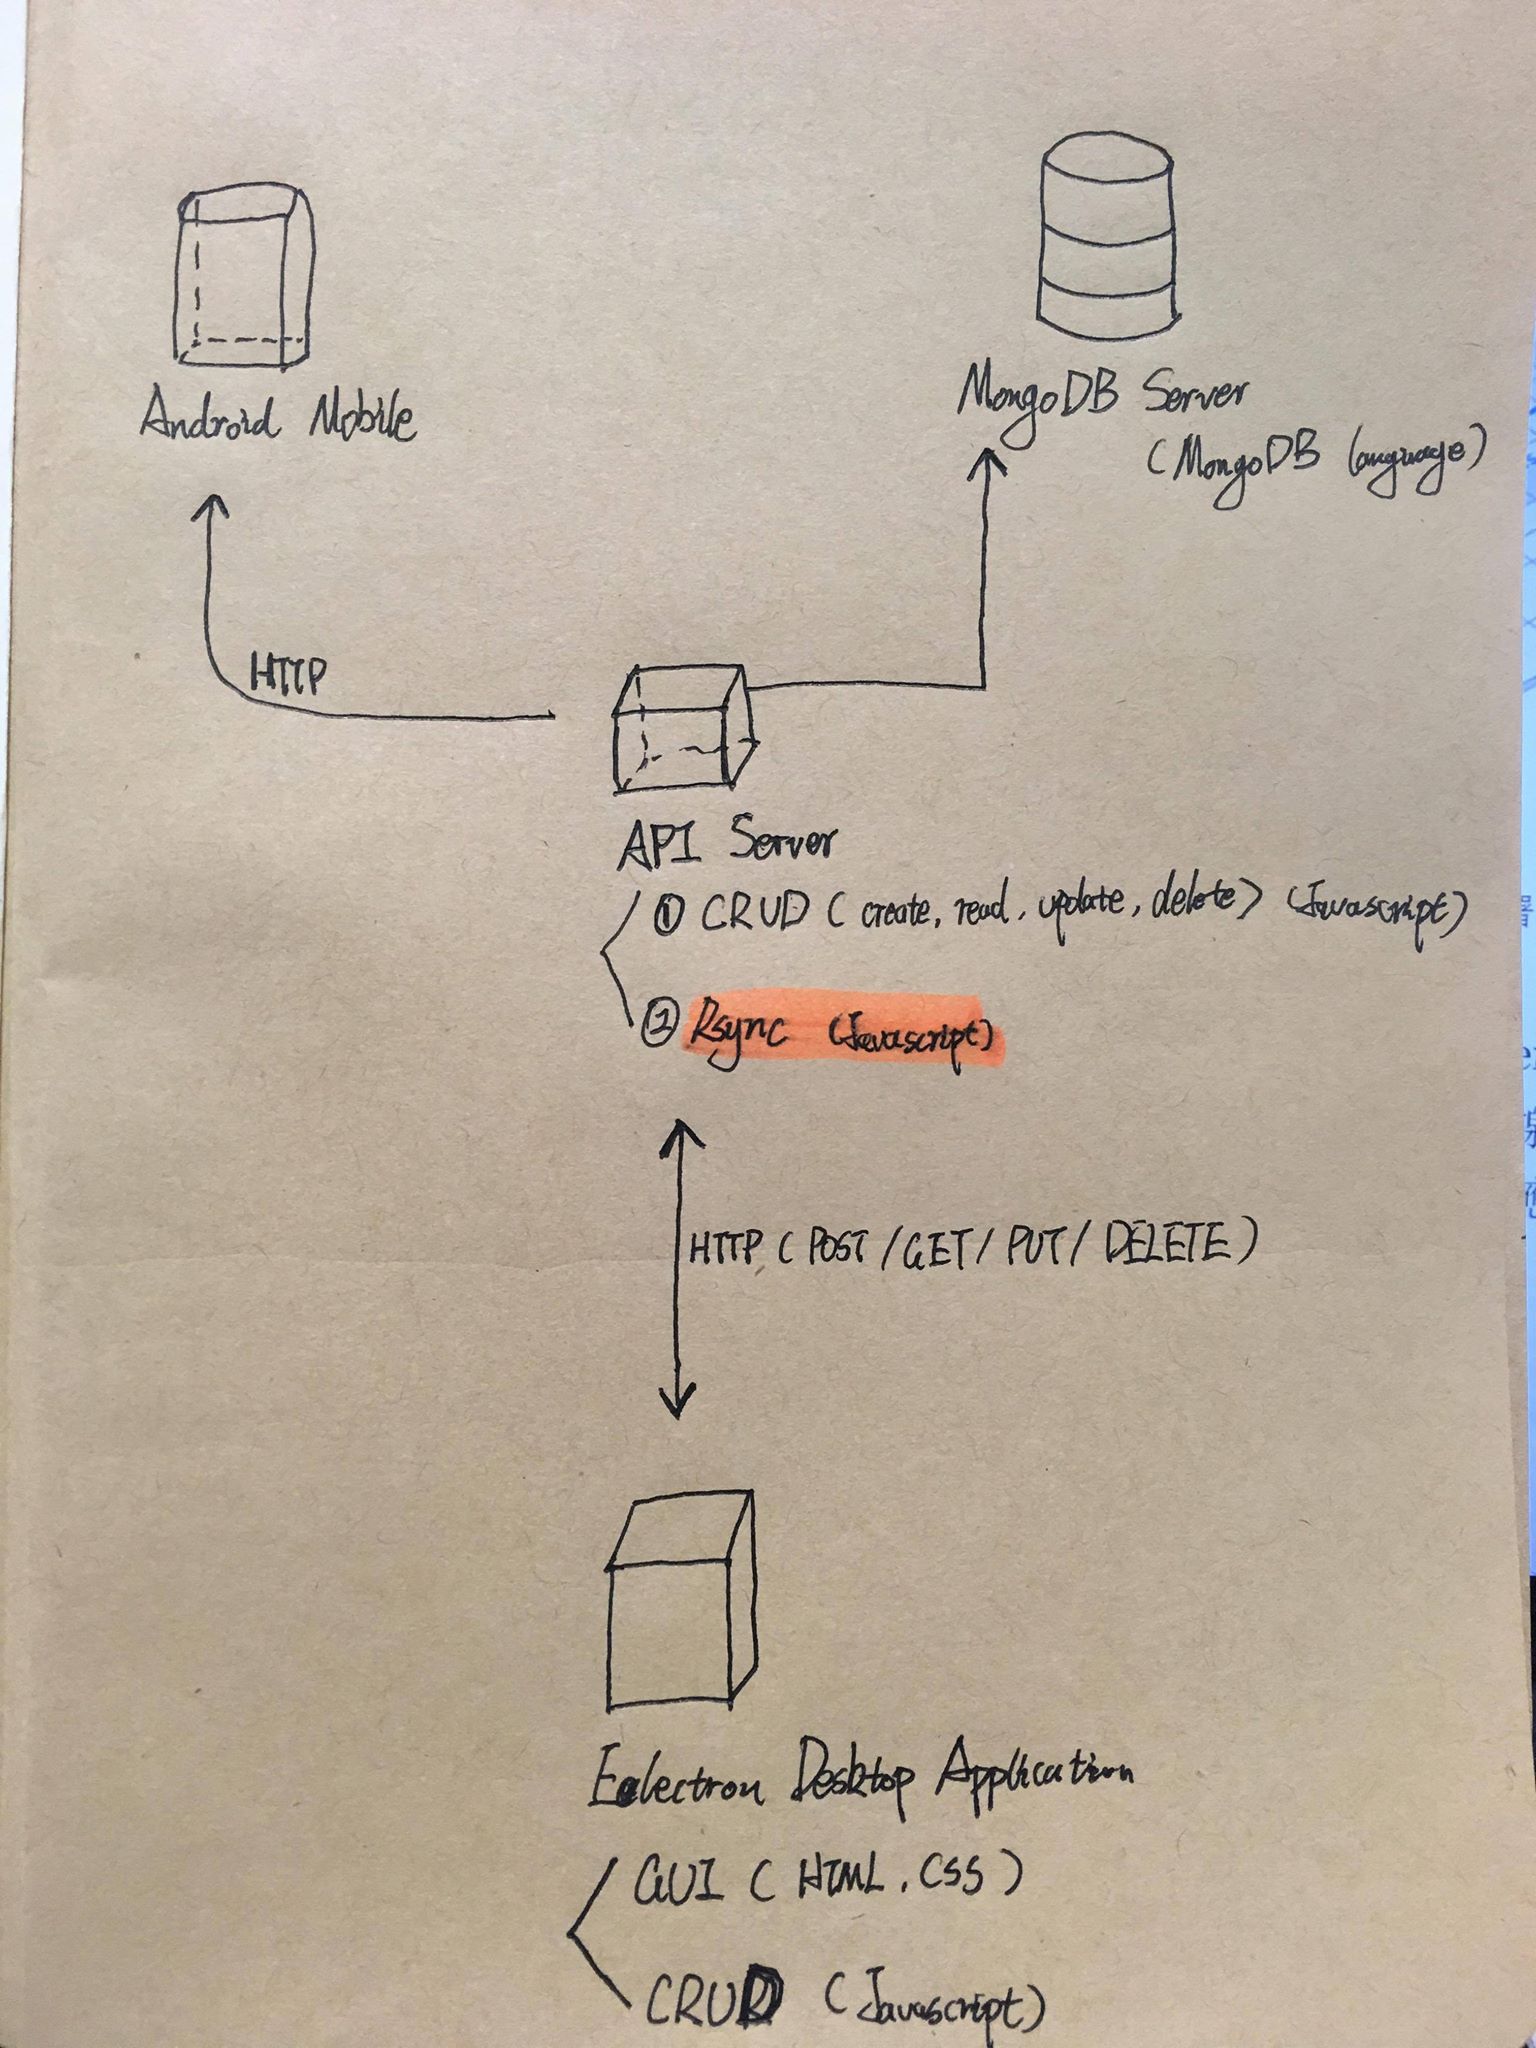 Android Mobile
MongoDB Server
(MongoDB language)
HTTP
API Server
① CRUD (create, read, update, delete) (Javascript)
② Rsync (Javascript)
HTTP (POST/GET/PUT/DELETE)
Eelectron Desktop Application
GUI (HTML, CSS)
CRUD (Javascript)